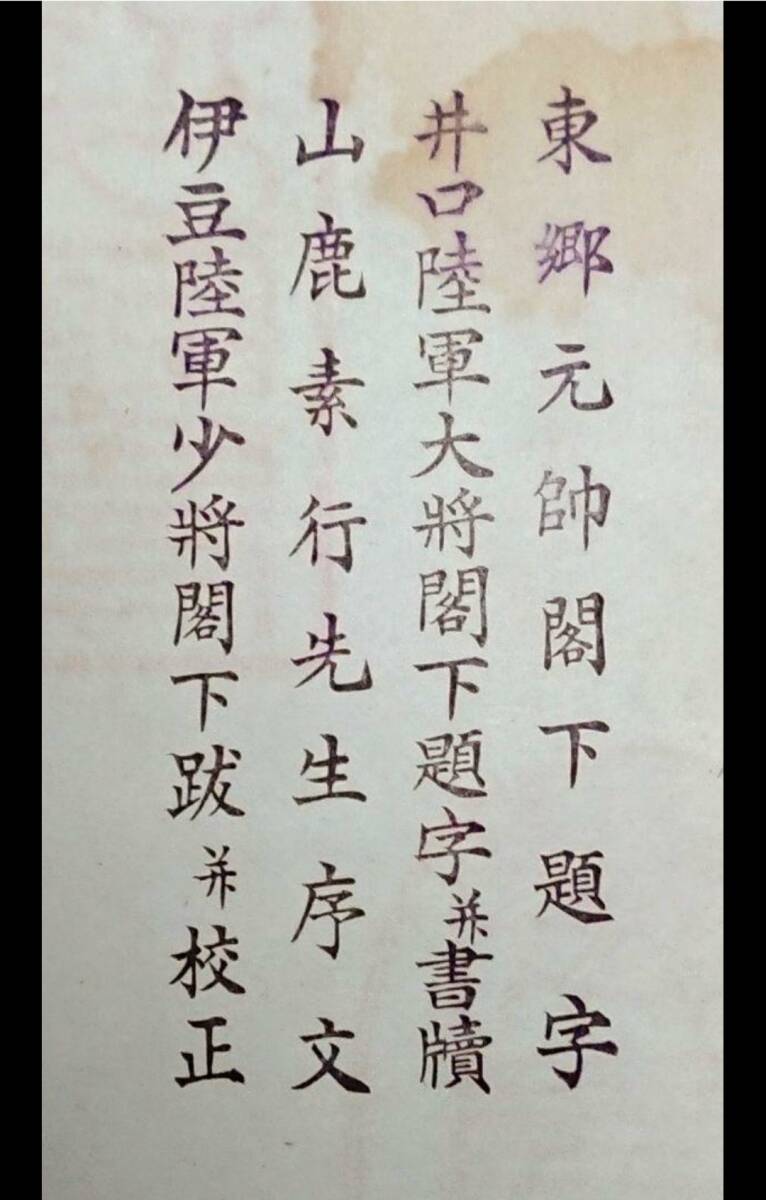 東郷元帥閣下題字
井口陸軍大將閣下題字并書牘
山鹿素行先生序文
伊豆陸軍少將閣下跋并校正